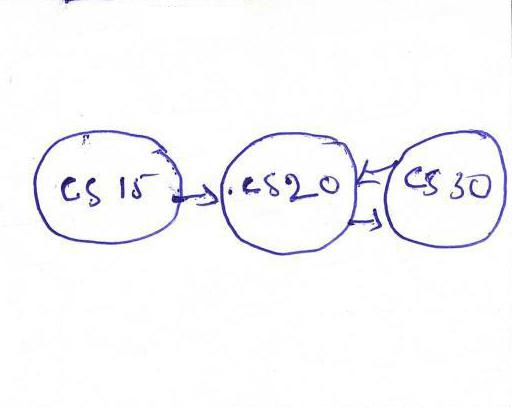 CS 15
CS20
CS 30